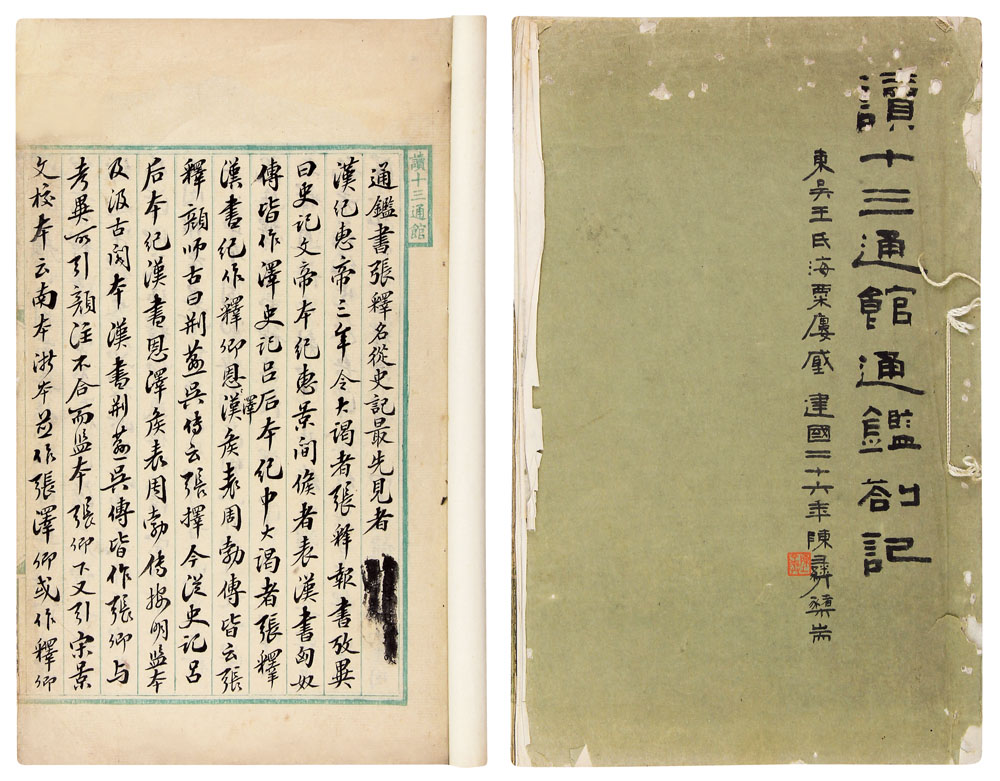 讀十三通館通鑑劄記
東吳王氏海粟廔藏 建國二十六年陳彝榘耑
讀十三通館
通鑑書張釋名從史記最先見者
漢紀惠帝三年令大謁者張釋報書攷異
曰史記文帝本紀惠景間侯者表漢書匈奴
傳皆作澤史記呂后本紀中大謁者張釋
漢書紀作釋卿恩澤侯表周勃傳皆云張
釋顏師古曰荆燕吳傳云張擇今從史記呂
后本紀漢書恩澤矦表周勃傳按明監本
及汲古閣本漢書荆燕吳傳皆作張卿与
考異所引顏注不合而監本張卿下又引宋景
文校本云南本浙本並作張澤卿或作釋卿